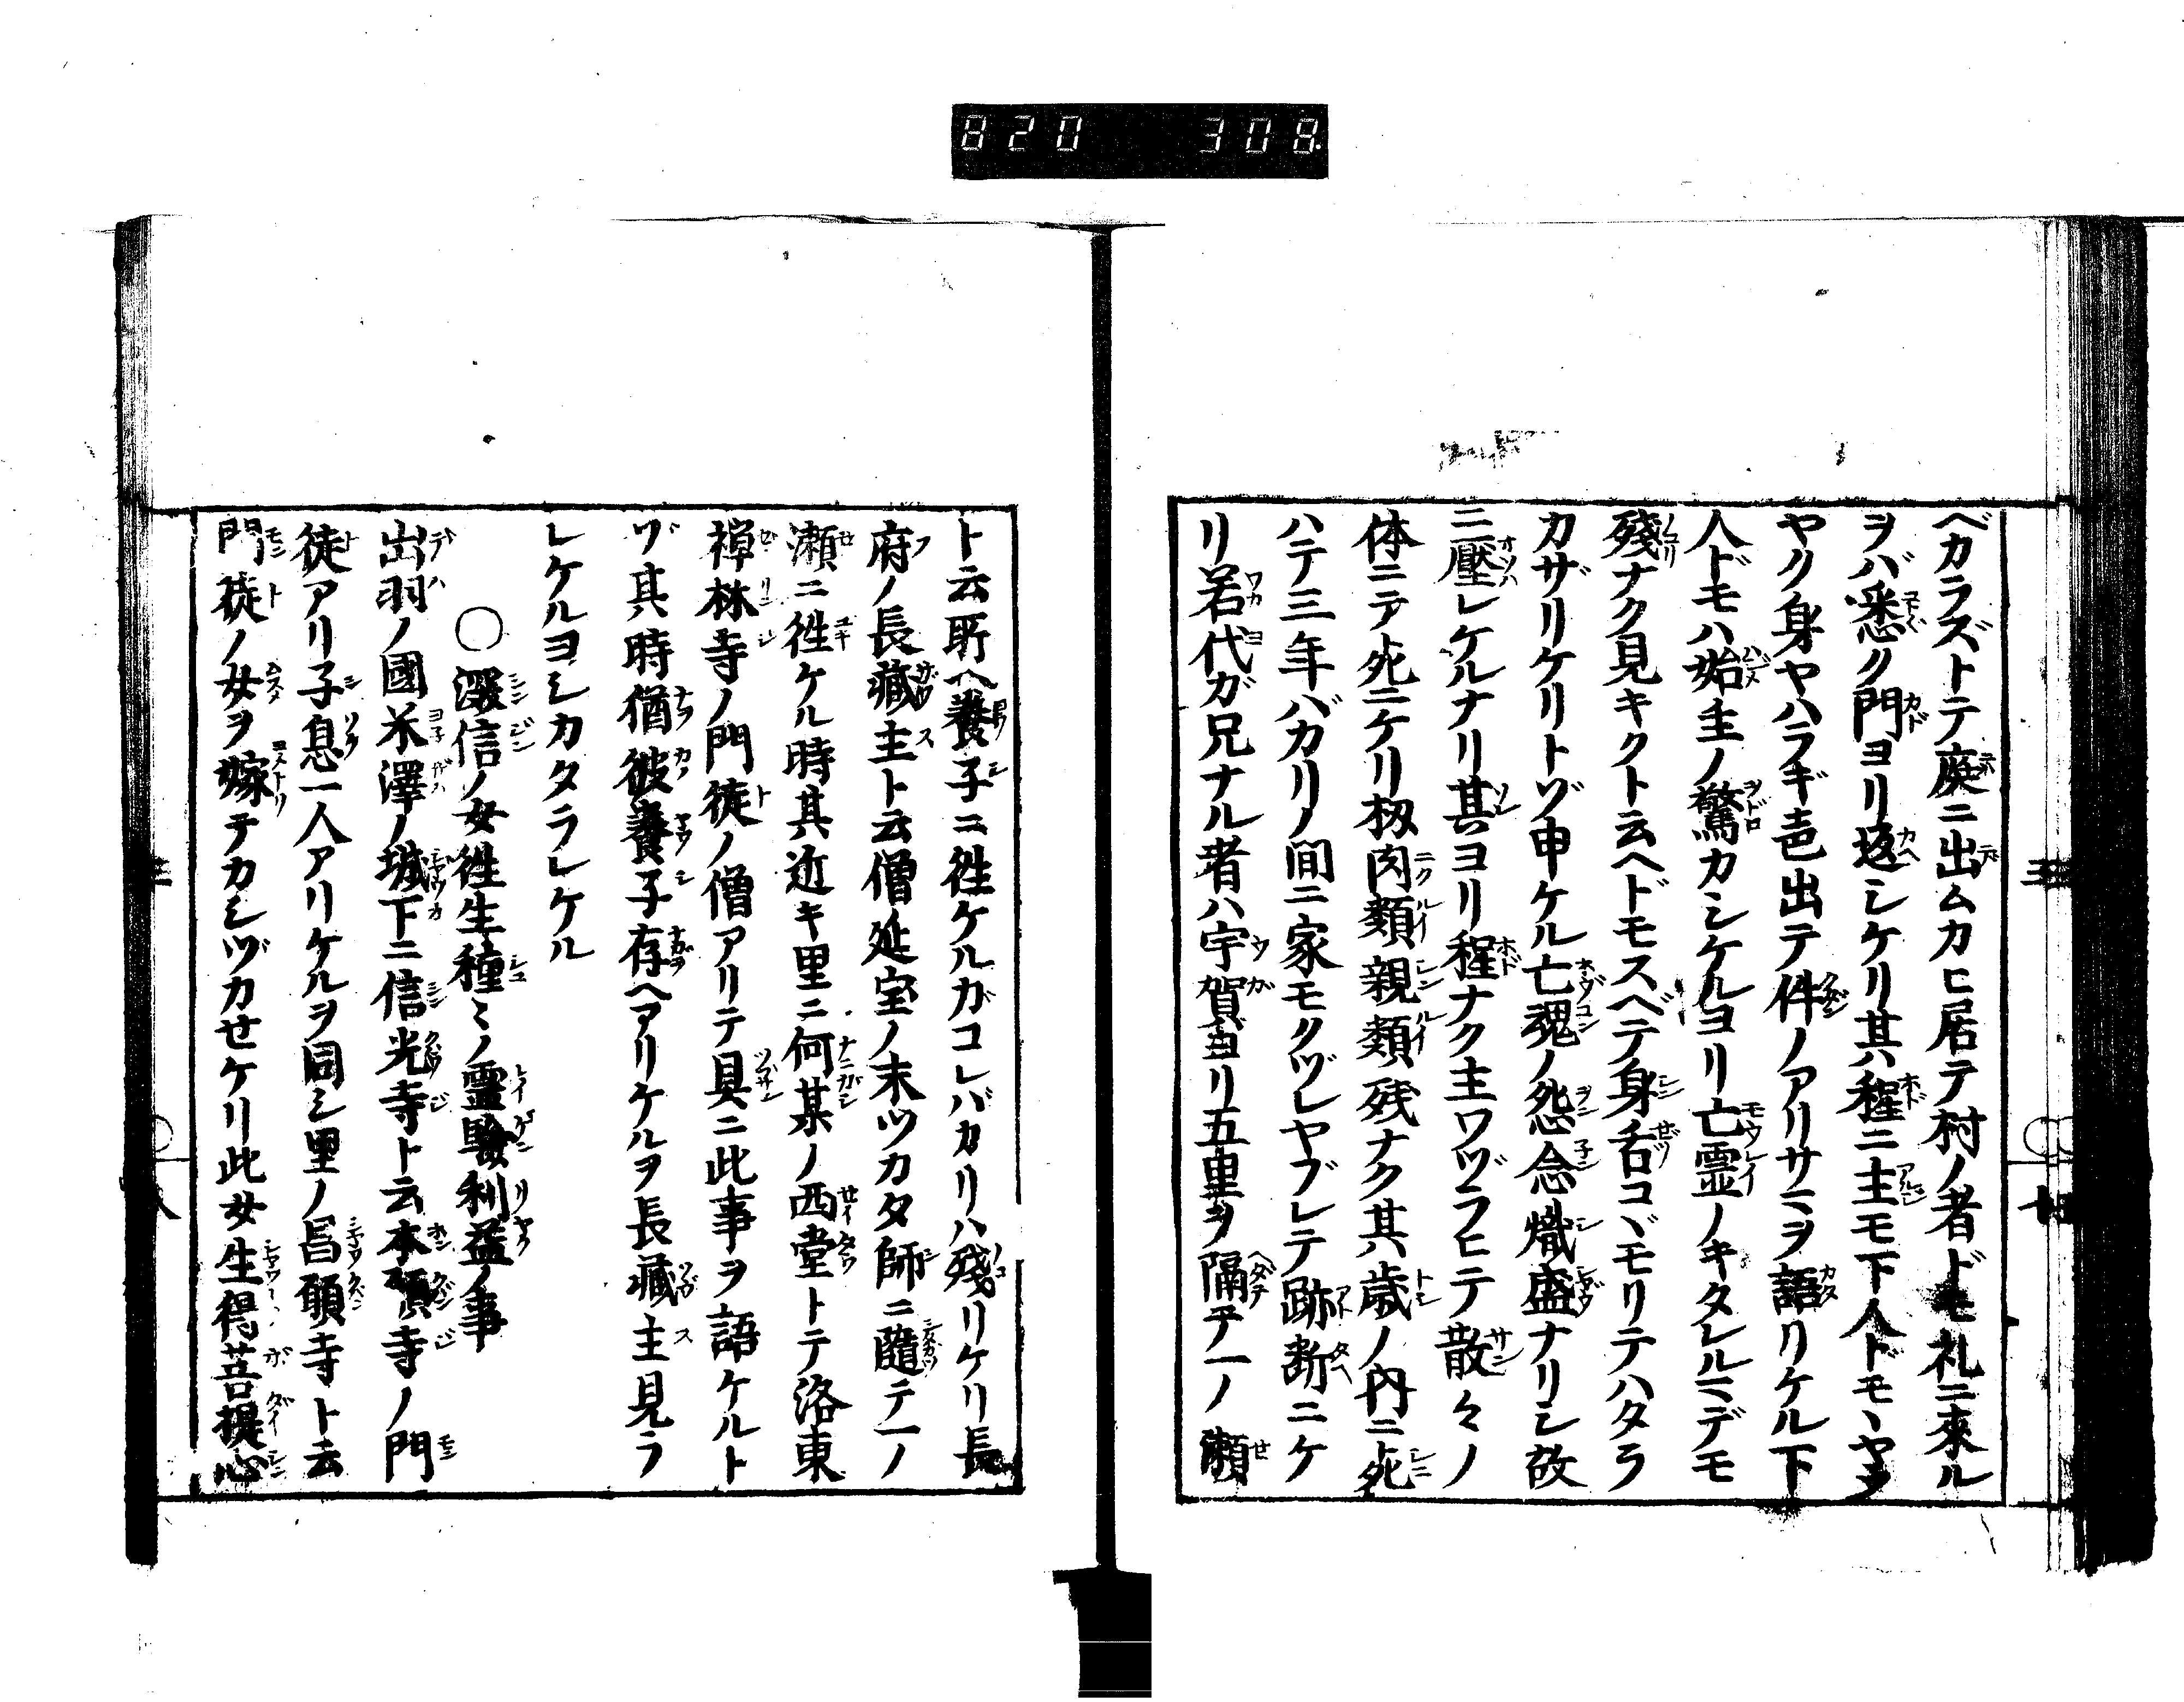 820 308
ベカラズトテ庭ニ出ムカヒ居テ村ノ者ドモ礼ニ來ル
ヲバ悉ク門ヨリ返シケリ其程ニ主モ下人ドモヽヤヲ
ヤク身ヤハラギ邑出テ件ノアリサミヲ語リケル下
人ドモハ始主ノ驚カシケルヨリ亡霊ノキタレルミデモ
殘ナク見キクト云ヘドモスベテ身舌コヾモリテハタラ
カザリケリトゾ申ケル亡魂ノ怨念熾盛ナリシ故
ニ壓レケルナリ其ヨリ程ナク主ワヅラヒテ散々ノ
体ニテ死ニケリ扨肉類親類残ナク其歳ノ内ニ死
ハテ三年バカリノ間ニ家モクヅレヤブレテ跡斷ニケ
リ若代ガ兄ナル者ハ宇賀ヨリ五里ヲ隔テ一ノ瀬
ト云所ヘ養子ニ徃ケルガコレバカリハ殘リケリ長
府ノ長藏主ト云僧延宝ノ末ツカタ師ニ隨テ一ノ
瀬ニ徃ケル時其近キ里ニ何某ノ西堂トテ洛東
禅林寺ノ門徒ノ僧アリテ具ニ此事ヲ語ケルト
ゾ其時猶彼養子存ヘアリケルヲ長藏主見ラ
レケルヨシカタラレケル
○深信ノ女徃生種ミノ霊験利益ノ事
出羽ノ國米澤ノ城下ニ信光寺ト云本願寺ノ門
徒アリ子息一人アリケルヲ同シ里ノ昌願寺ト云
門徒ノ女ヲ嫁テカシヅカせケリ此女生得菩提心